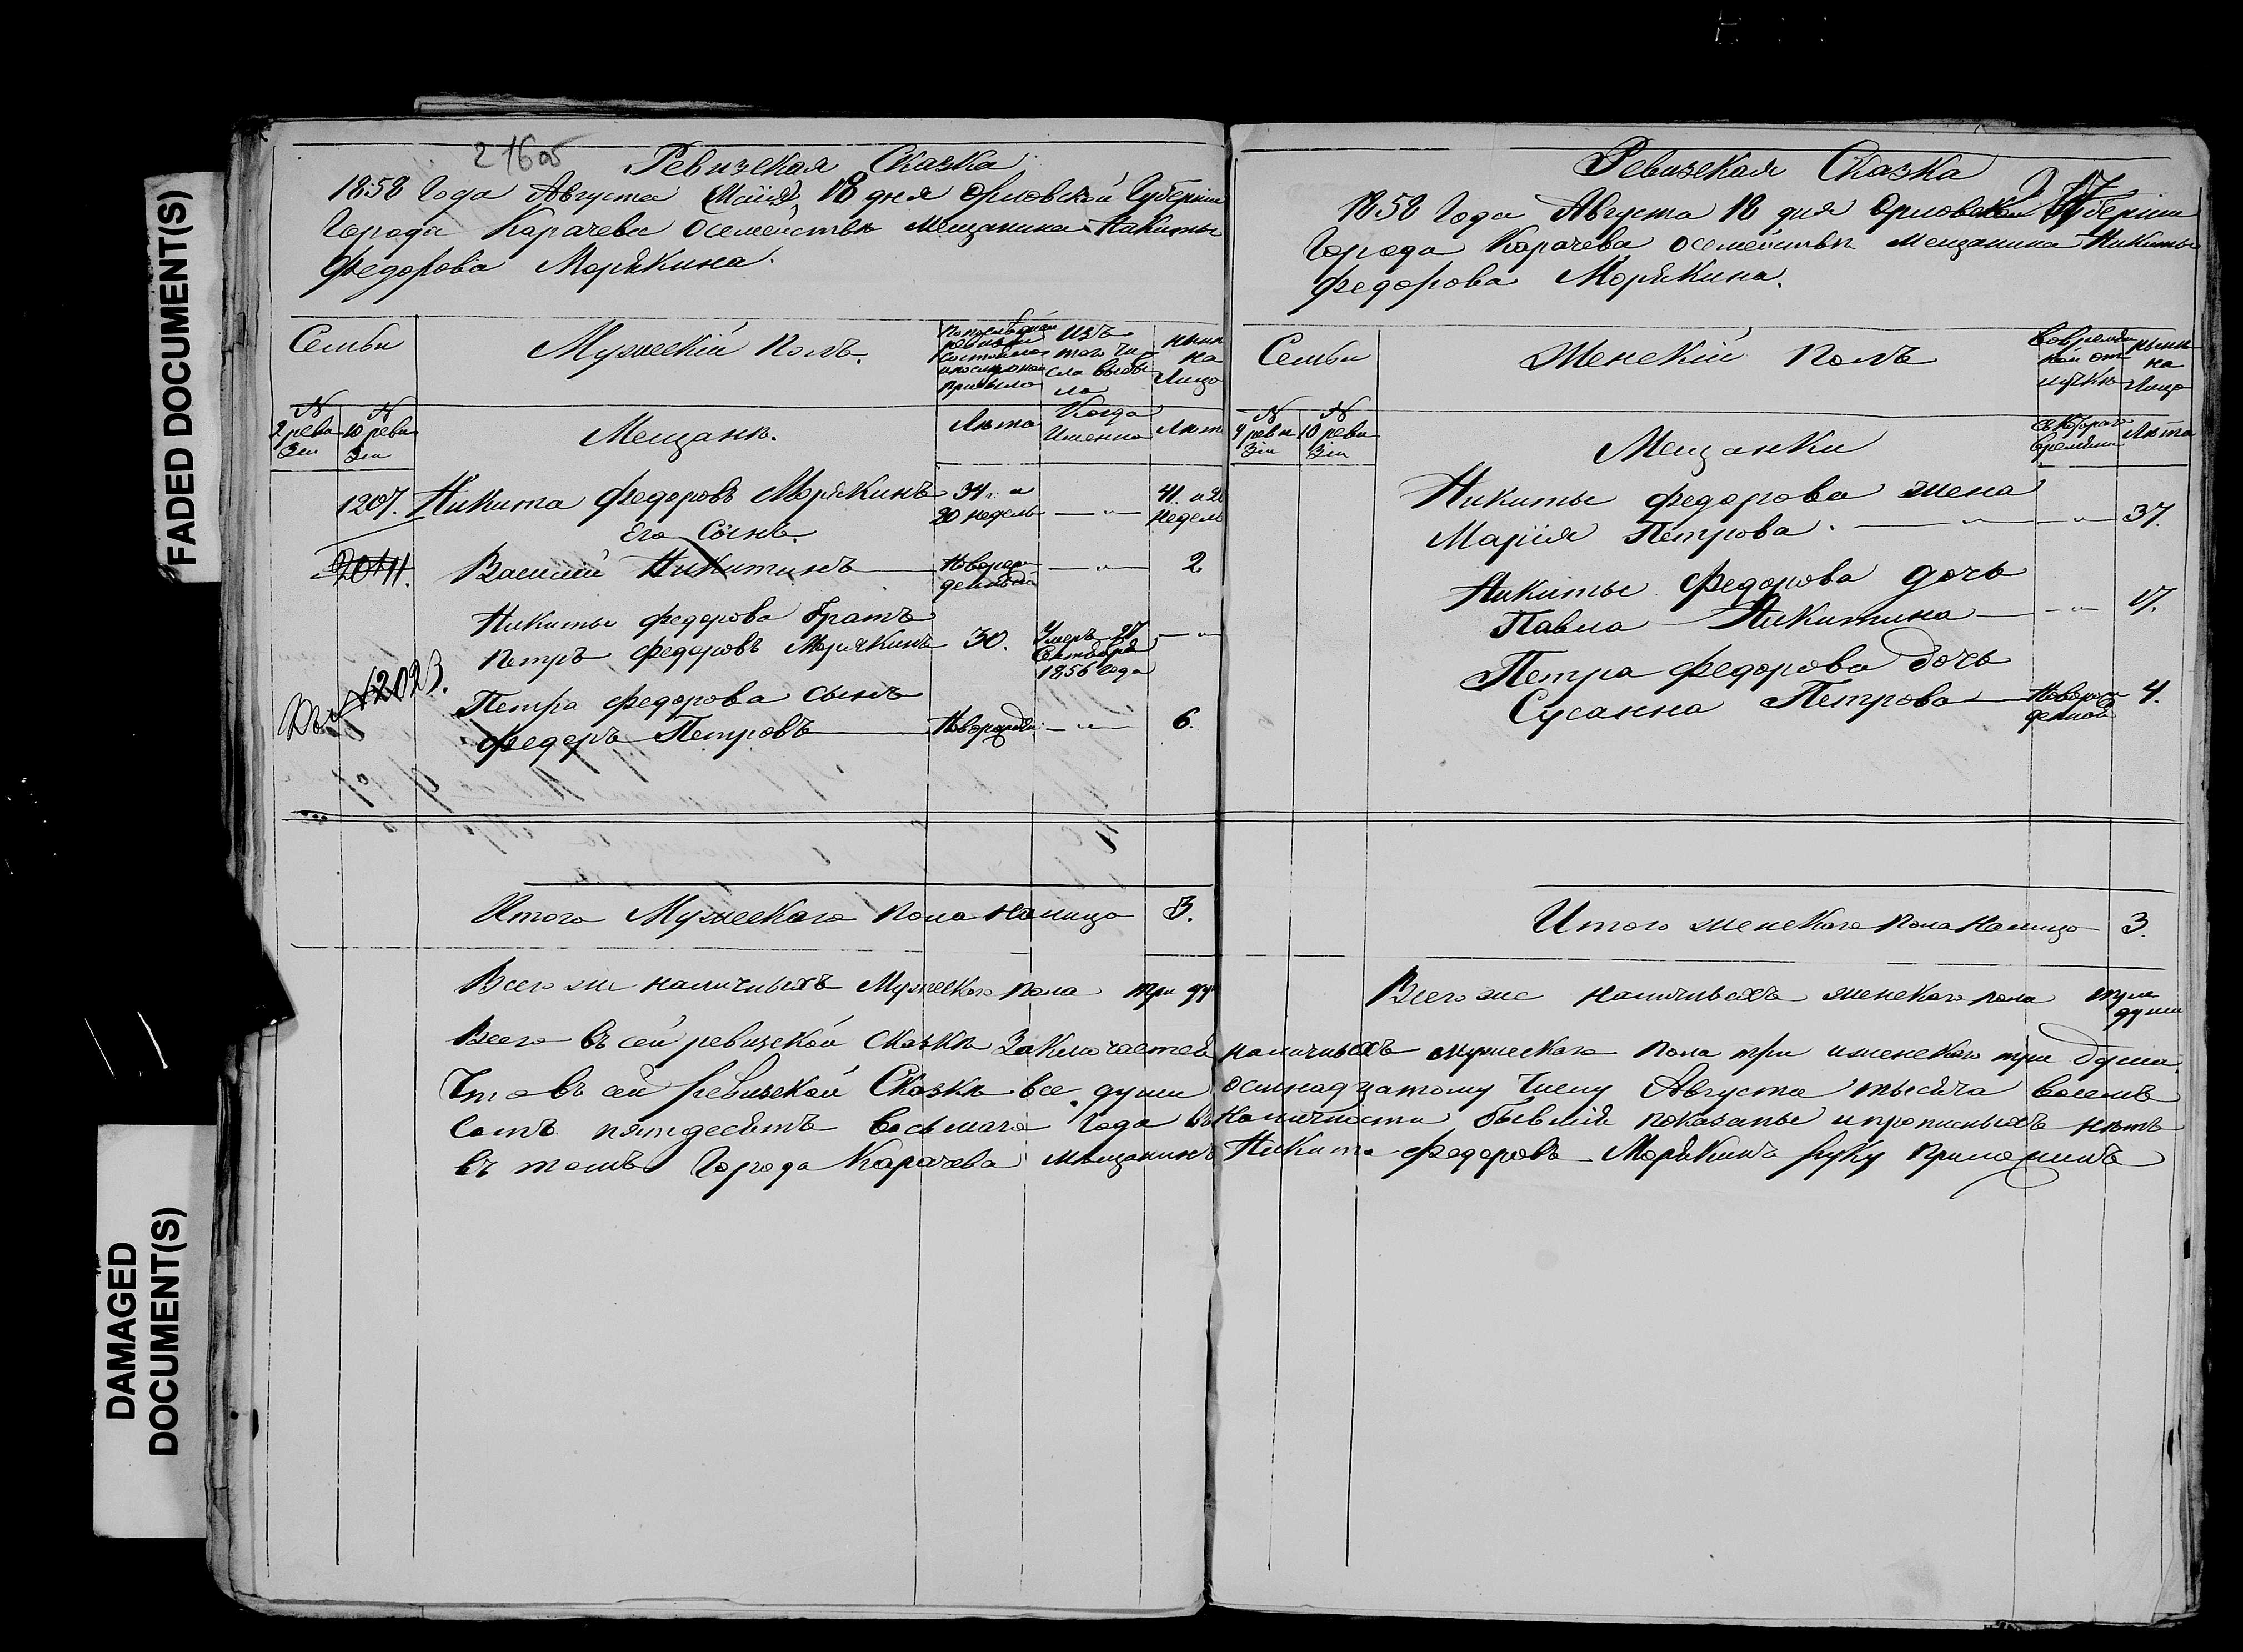 FADED DOCUMENT(S)
DAMAGED
DOCUMENT(S)
Ревизская Сказка
1858 Года Августа 18 дня Орловской Губерніи
Города Карачева осемействѣ мещанина Никиты
Федорова Морякина.
Семьи
Мужескій полъ.
Изъ
того чи
сла выбы
ло
нынѣ
на
Лицо
№
ревизіи
№
10 реви
зіи
Мещане.
Лѣта
Когда
Именно
Лѣта
1207. Никита Федоровъ Морякинъ 34 и
20 недель — „ — 41. и 20
недель
Его Сынъ.
Василий Никитинъ Новорож
денной — „ — 2
Никиты Федорова братъ
Петръ Федоровъ Морякинъ 30. Умеръ 27
Сентября
1856 года — „
Петра Федорова сынъ
Федеръ Петровъ Новорожден — „ — 6.
Итого Мужескаго пола налицо 3.
Всего же наличныхъ Мужескаго пола три ду
Ревизская Сказка
1858 Года Августа 18 дня Орловской Губерніи
Города Карачева осемействѣ мещанина Никиты
Федорова Морякина.
Семьи
Женскій полъ
Вовремен
ной от
лучкѣ
нынѣ
на
Лицо
№
9 реви
зіи
№
10 реви
зіи
Мещанки
съкотораго
времяни
Лѣта
Никиты Федорова жена
Марія Петрова. — „ — „ — 37.
Никиты Федорова дочь
Павла Никитина — „ — 17.
Петра Федорова дочь
Сусанна Петрова Новорож
денной 4.
Итого женскаго пола налицо 3.
Всего же наличныхъ женскаго пола три
души
Всего въ сей ревизской сказкѣ Заключается наличныхъ мужескаго пола три иженскаго три души.
Что въ сей ревизской Сказкѣ все души осимнадцатому числу Августа тысяча восемь
сотъ пятдесятъ восьмаго Года въ наличности бывшія показаны ипрописныхъ нѣтъ
въ томъ Города Карачева мѣщанинъ Никита Федоровъ Морякинъ руку приложилъ